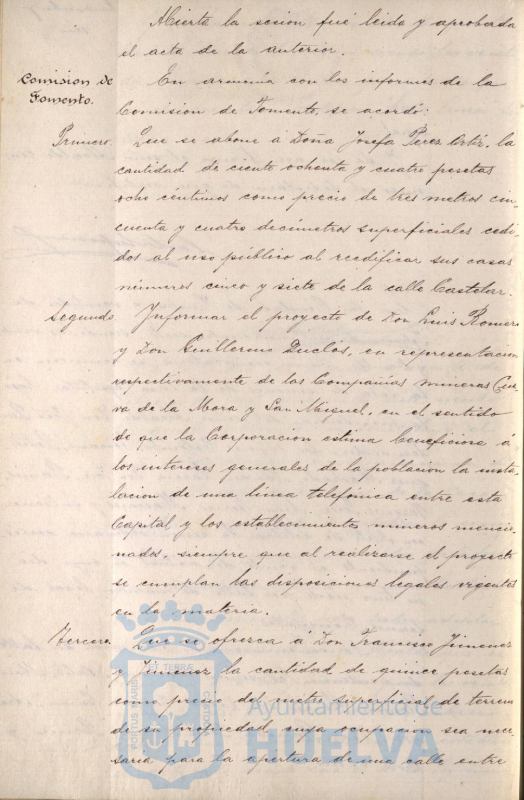 Abierta la sesion fué leida y aprobada
el acta de la anterior.
Comision de
Fomento.
En armonía con los informes de la
Comision de Fomento, se acordó:
Primero. Que se abone á Doña Josefa Perez Ortiz, la
cantidad de ciento ochenta y cuatro pesetas
ocho céntimos como precio de tres metros cin
cuenta y cuatro decímetros superficiales cedi
dos al uso público al reedificar sus casas
números cinco y siete de la calle Castelar.
Segundo. Informar el proyecto de Don Luis Romero
y Don Guillermo Duclós, en representacion
respectivamente de las Compañías mineras Cue
va de la Mora y San Miguel, en el sentido
de que la Corporacion estima beneficiosa á
los intereses generales de la poblacion la insta
lacion de una línea telefónica entre esta
Capital y los establecimientos mineros mencio
nados, siempre que al realizarse el proyecto
se cumplan las disposiciones legales vigentes
en la materia.
Tercero. Que se ofrezca á Don Francisco Jimenez
y Jimenez la cantidad de quince pesetas
como precio del metro superficial de terreno
de su propiedad cuya ocupacion sea nece
saria para la apertura de una calle entre
Ayuntamiento de
HUELVA
PORTUS MARIS ET TERRÆ CUSTODIA